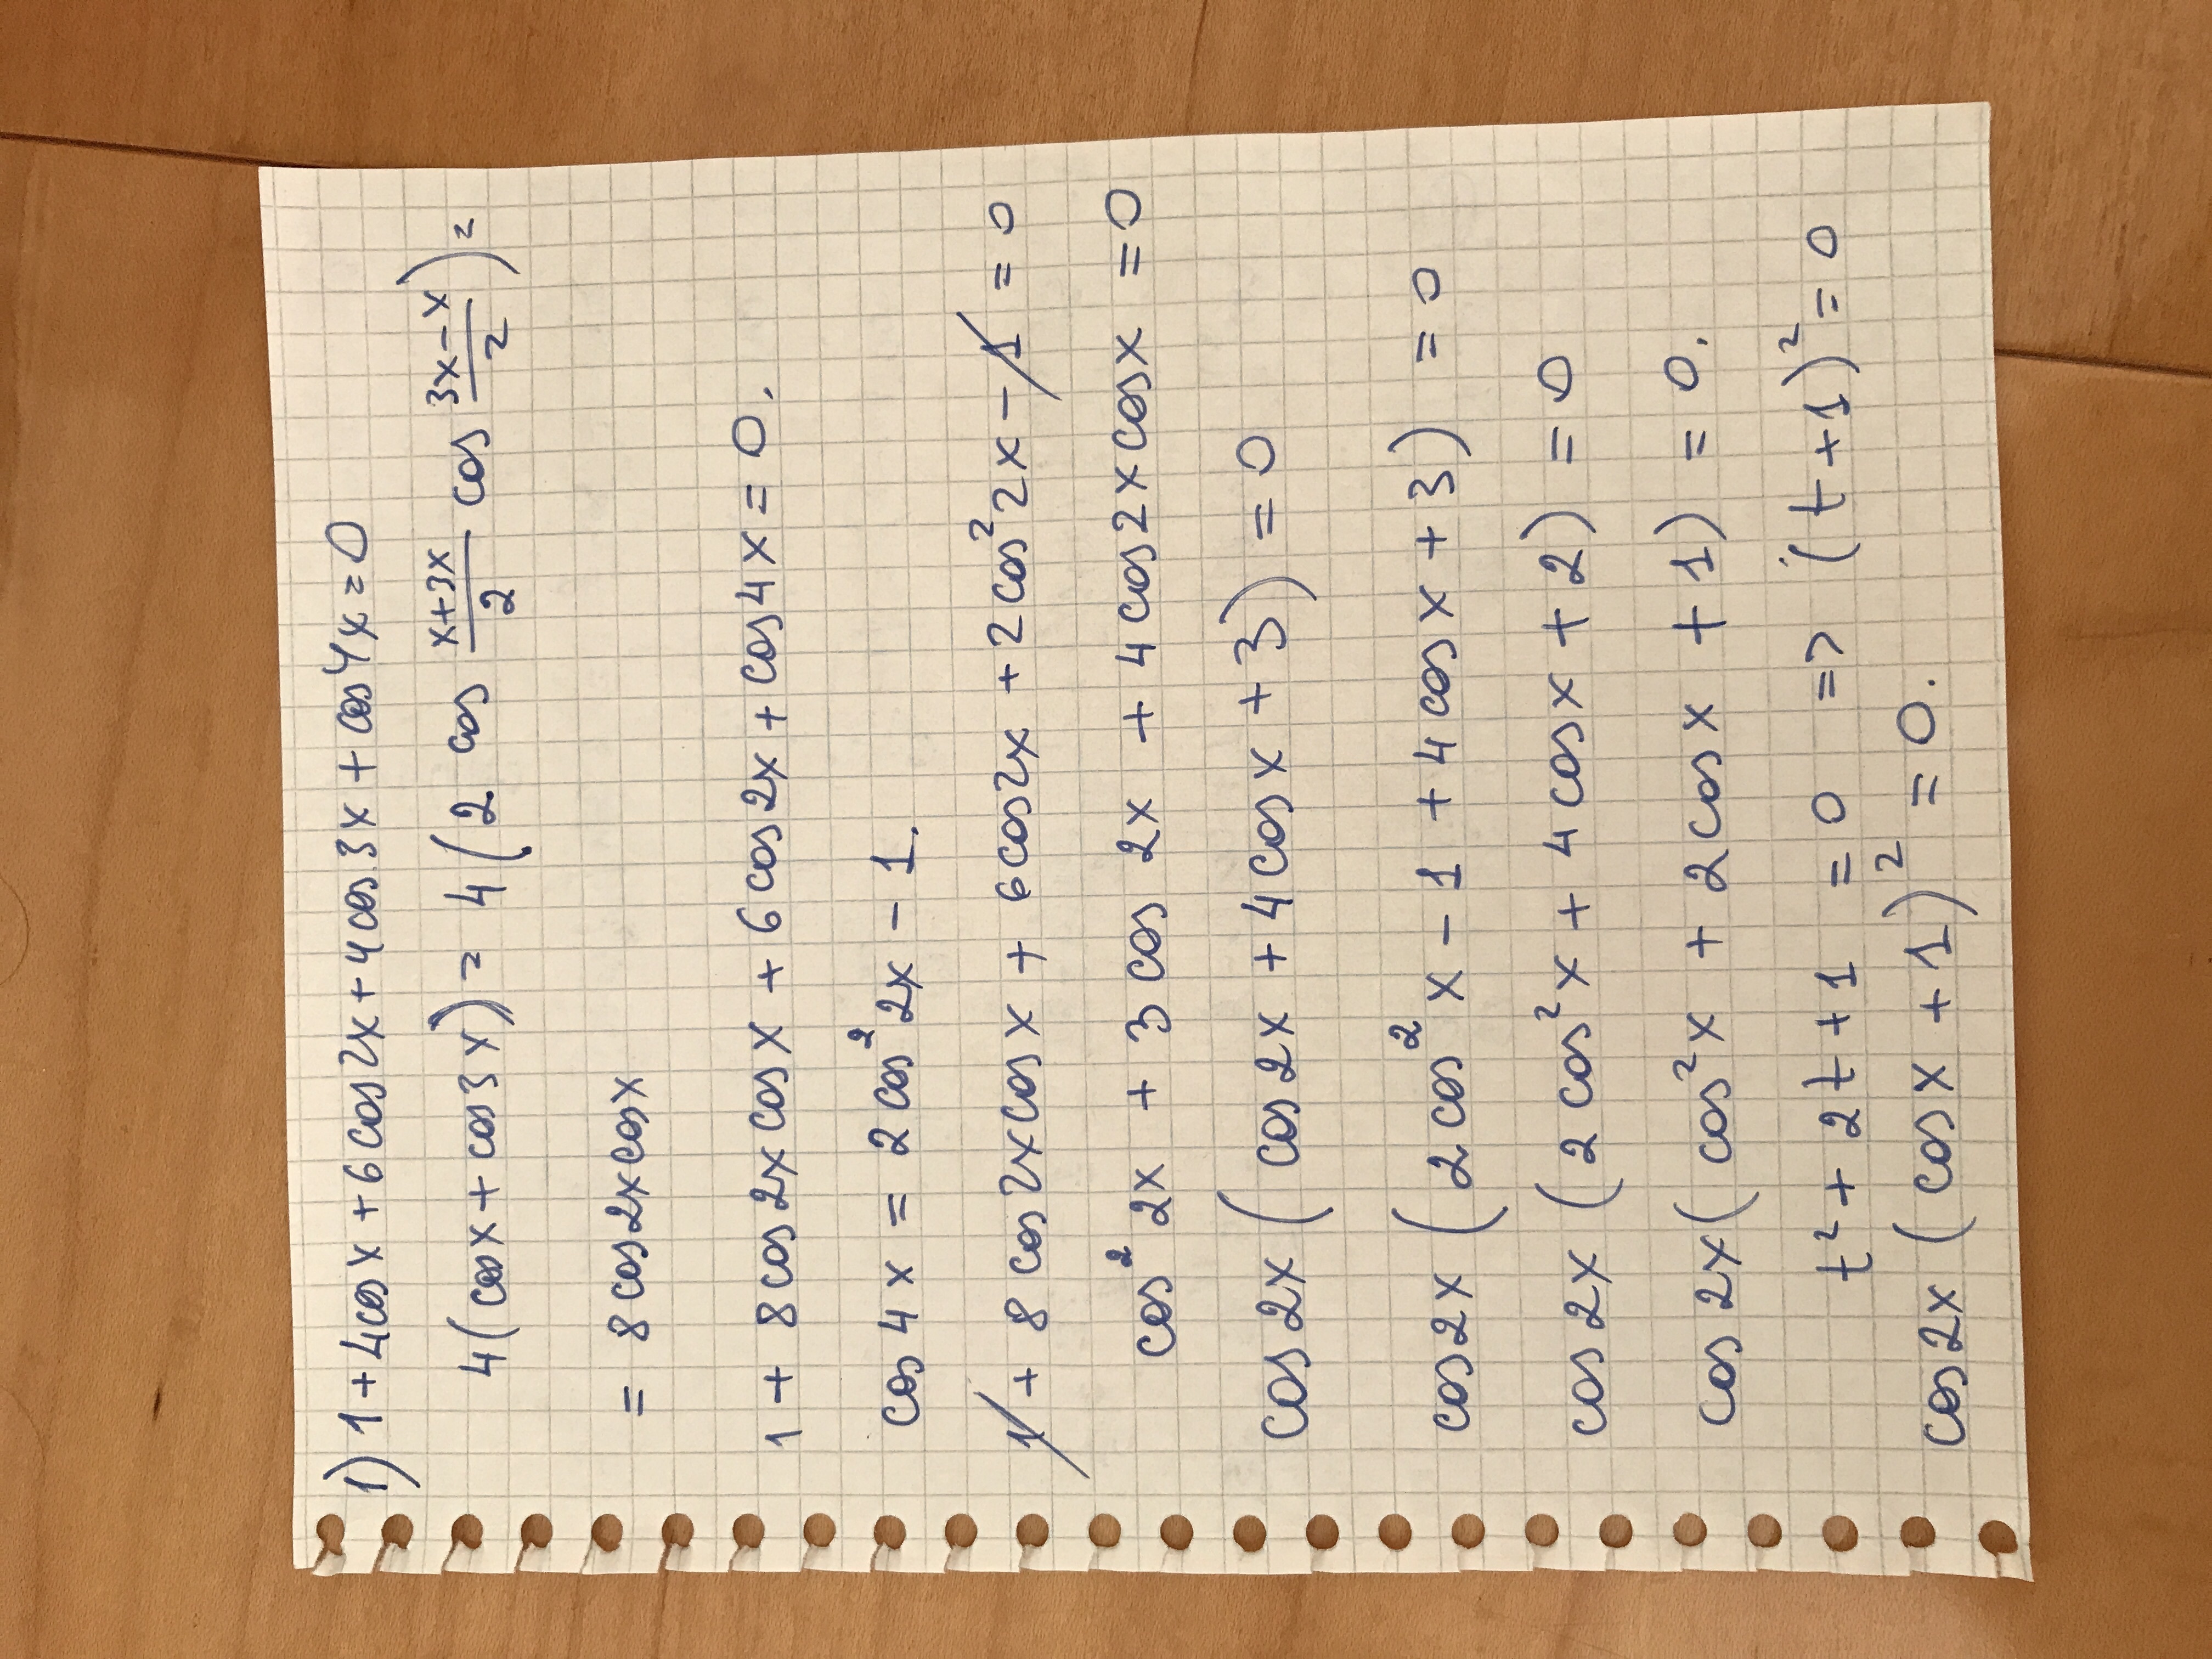 1) 1 + 4cos x + 6 cos 2x + 4 cos 3x + cos 4x = 0
4(cos x + cos 3x) = 4(2 cos (x+3x)/2 cos (3x−x)/2) =
= 8 cos 2x cos x
1 + 8 cos 2x cos x + 6 cos 2x + cos 4x = 0.
cos 4x = 2 cos² 2x − 1.
1 + 8 cos 2x cos x + 6 cos 2x + 2 cos² 2x − 1 = 0
cos² 2x + 3 cos 2x + 4 cos 2x cos x = 0
cos 2x (cos 2x + 4 cos x + 3) = 0
cos 2x (2 cos² x − 1 + 4 cos x + 3) = 0
cos 2x (2 cos² x + 4 cos x + 2) = 0
cos 2x (cos² x + 2 cos x + 1) = 0.
t² + 2t + 1 = 0 => (t + 1)² = 0
cos 2x (cos x + 1)² = 0.